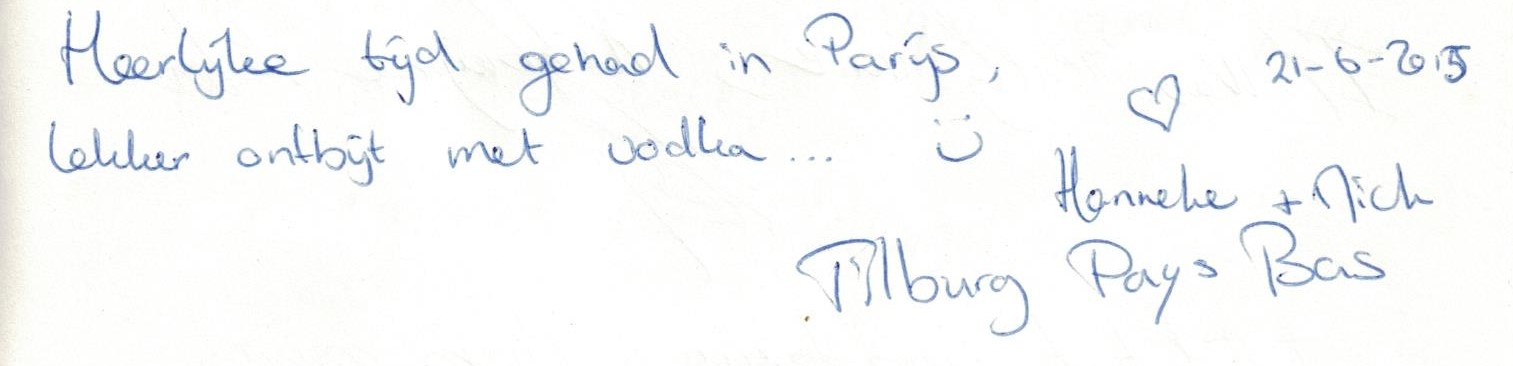 Heerlijke tijd gehad in Parijs,
21-6-2015
lekker ontbijt met vodka... ü
♡
Hanneke + Nick
Tilburg Pays Bas